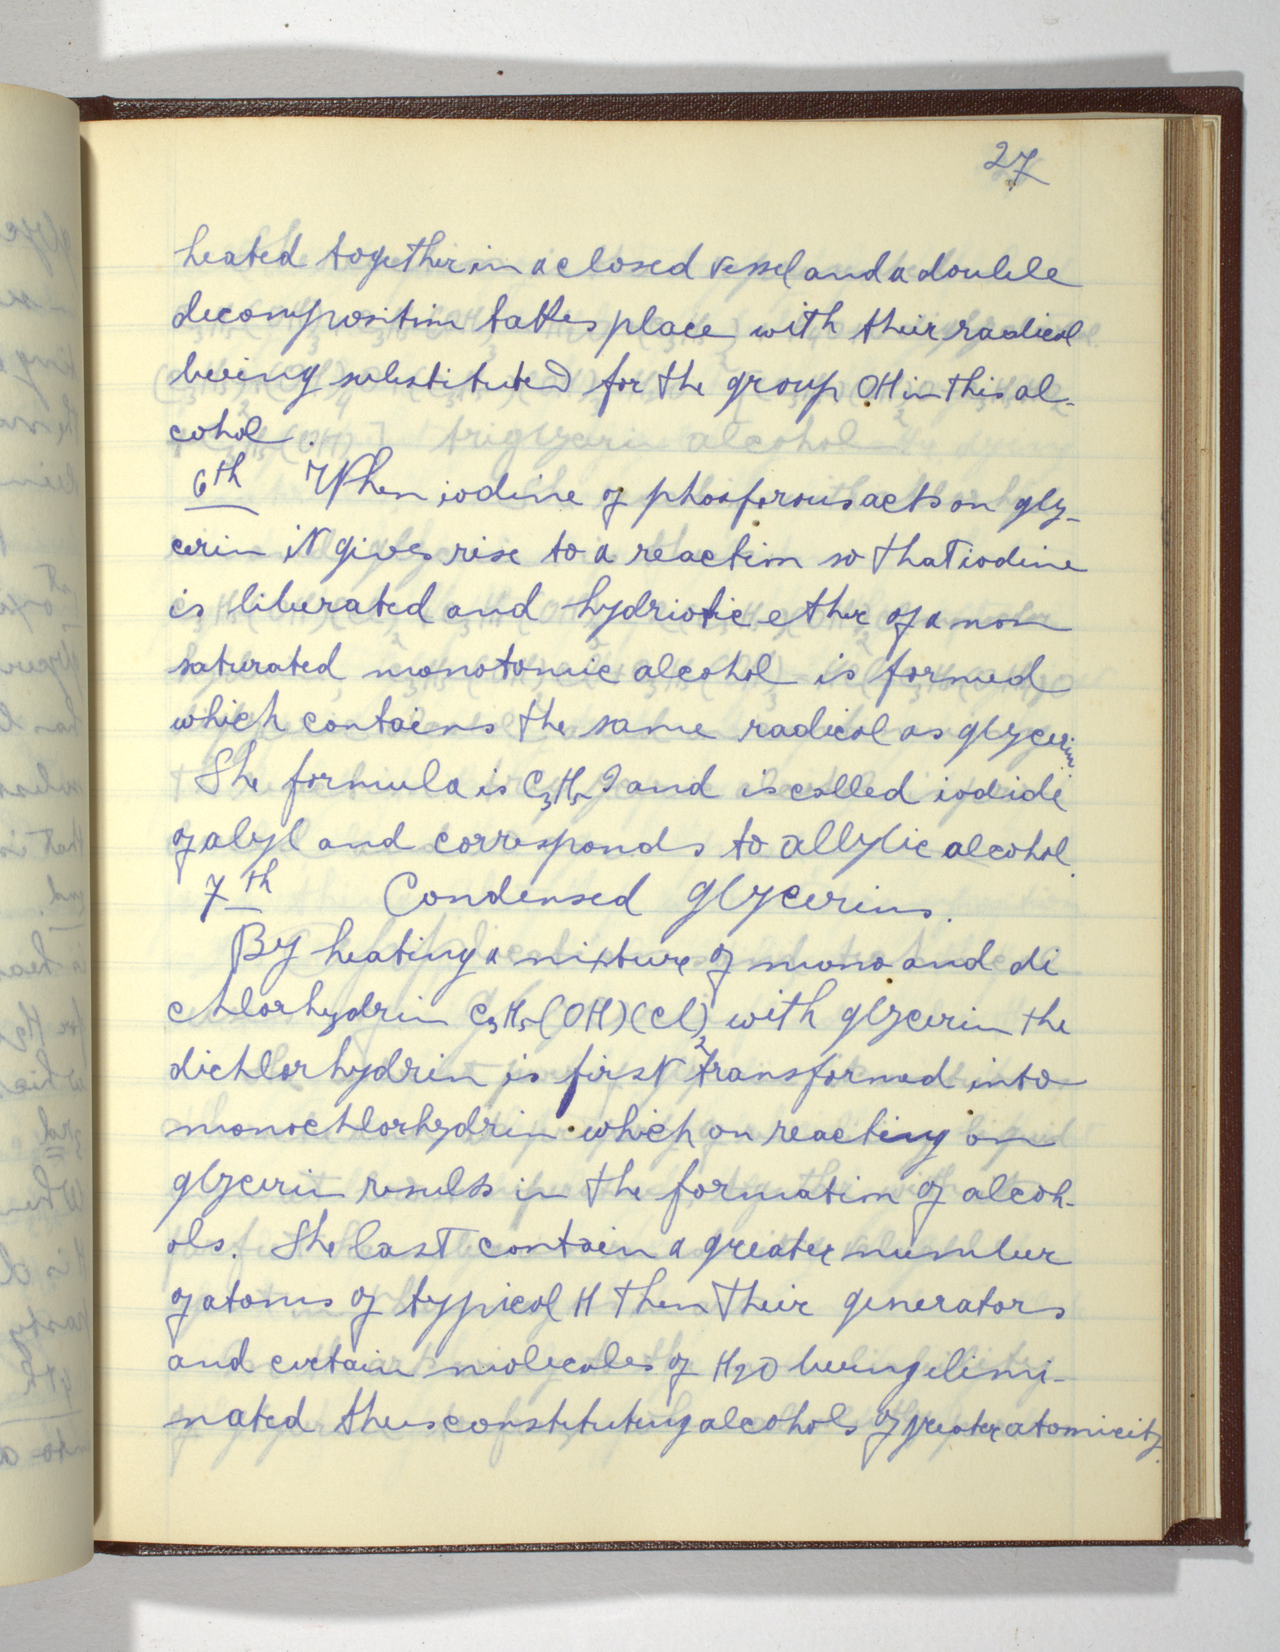 27
heated together in a closed vessel and a double
decomposition takes place with their radical
being substituted for the group OH in this al-
cohol.
6th When iodine of phosforous acts on gly-
cerin it gives rise to a reaction so that iodine
is liberated and hydriotic ether of a non
saturated monotomic alcohol is formed
which contains the same radical as glycerin.
The formula is C3H5I and is called iodide
of alyl and corresponds to allylic alcohol.
7th Condensed glycerins.
By heating a mixture of mono and di
chlorhydrin C3H5(OH)(Cl)2 with glycerin the
dichlorhydrin is first transformed into
monochlorhydrin which on reacting on
glycerin results in the formation of alcoh-
ols. The last contain a greater number
of atoms of typical H then their generators
and certain molecules of H2O being elimi-
nated thus constituting alcohols of greater atomicity.